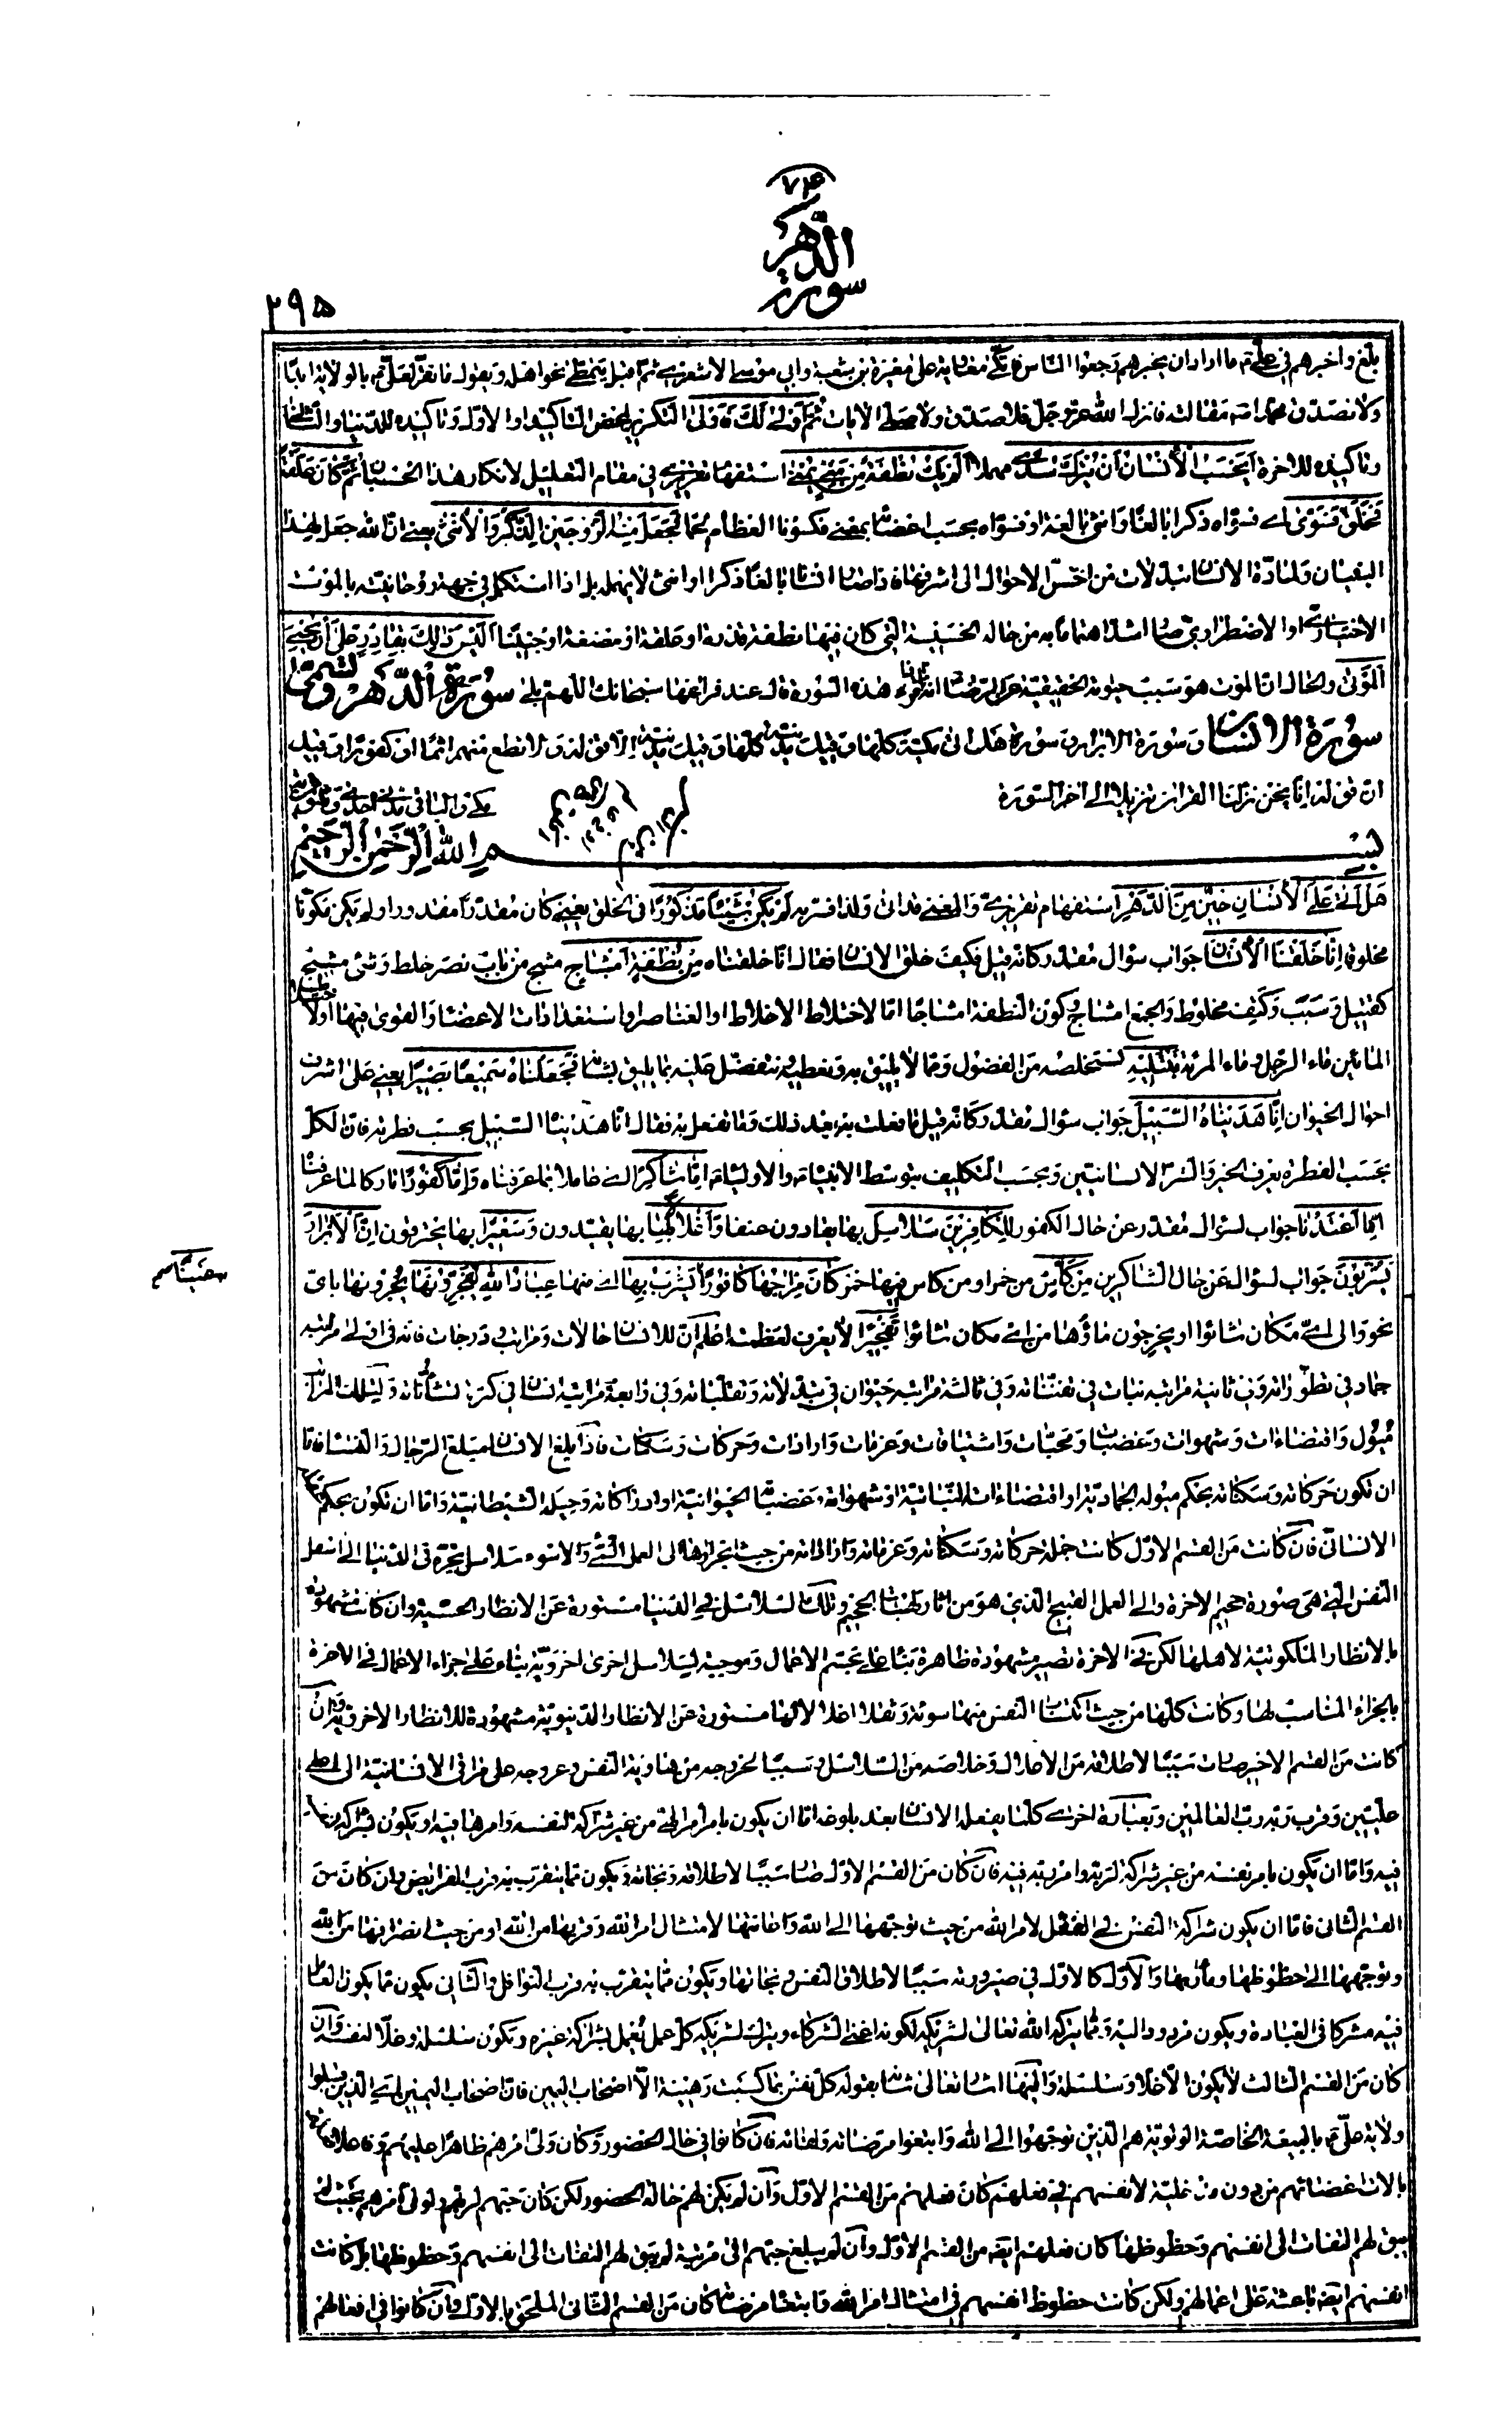 ٧٦
سورة الدهر
٢٩٥
بلغ واخبرهم في علىّ ما اراد ان يخبرهم رجعوا الناس فاتكى معاوية على مغيرة بن شعبة وابى موسى الاشعرى ثم اقبل يتمطّى نحو اهله ويقول ما نقرّ لعلىّ بالولاية ابدا
ولا نصدّق محمّدا مقالته فانزل الله عزّوجلّ فلا صدّق ولا صلّى الآيات ثمّ اولى لك فاولى التكرير لمحض التأكيد او الاوّل وتأكيده للدّنيا والثانى
وتأكيده للاخرة ايحسب الانسان ان يترك سدى مهملا الم يك نطفة من منىّ يمنى استفهام تقريرى في مقام التعليل لانكار هذا الحسبان ثمّ كان علقة
فخلق فسوّى اى فسوّاه ذكرا بالغا وانثى بالغة او فسوّاه بحسب اعضائه بمعنى فكسونا العظام لحما فجعل منه الزّوجين الذّكر والانثى يعنى انّ الله جعل لهذا
البنيان ولمادّة الانسان تبدّلات من اخسّ الاحوال الى اشرفها فاذا صار انسانا بالغا ذكرا او انثى لا يهمله بل اذا استكمل في جهته روحانيته بالموت
الاختيارىّ او الاضطرارىّ صار اشدّ اهتماما به من حاله الخسيسة التى كان فيها نطفة قذرة او علقة او مضغة او جنينا اليس ذلك بقادر على ان يحيى
الموتى والحال انّ الموت هو سبب حيوته الحقيقيّة عن الرّضا انه اذا قرء هذه السّورة قال عند فراغها سبحانك اللّهمّ بلى سورة الدّهر وتسمّى
سورة الانسان وسورة الابرار وسورة هل اتى مكّيّة كلّها وقيل مدنيّة كلّها وقيل مدنيّة الا قوله ولا تطع منهم اثما او كفورا وقيل
انّ قوله انّا نحن نزّلنا القران تنزيلا الى اخر السّورة
مكّى والباقى مدنى احدى وثلثون آية
بسم الله الرّحمن الرّحيم
هل اتى على الانسان حين من الدّهر استفهام تقريرى والمعنى قد اتى ولذا فسّر به لم يكن شيئا مذكورا في الخلق يعنى كان مقدّرا مقدورا ولم يكن مكوّنا
مخلوقا انّا خلقنا الانسان جواب سؤال مقدّر كانّه قيل فكيف خلق الانسان فقال انّا خلقناه من نطفة امشاج مشج من باب نصر خلط وشئ مشيج
كقتيل وسبب وكتف مخلوط والجمع امشاج وكون النطفة امشاجا امّا لاختلاط الاخلاط او العناصر او استعدادات الاعضاء والقوى فيها اولاختلاط
المائين ماء الرّجل وماء المرءة نبتليه نستخلصه من الفضول وممّا لا يليق به ونعطيه ونتفضّل عليه بما يليق بشأنه فجعلناه سميعا بصيرا يعنى على اشرف
احوال الحيوان انّا هديناه السّبيل جواب سؤال مقدّر كانّه قيل ما فعلت به بعد ذلك وما تفعل به فقال انّا هديناه السّبيل بحسب فطرته فانّ لكلّ
بحسب الفطرة يعرف الخير والشرّ الانسانيّين وبحسب التكليف بتوسّط الانبياء والاولياء امّا شاكرا اى عاملا بما عرفناه وامّا كفورا تاركا لما عرفنا
انّا اعتدنا جواب لسؤال مقدّر عن حال الكفور للكافرين سلاسل بها يقادون عنفا واغلالا بها يقيّدون وسعيرا بها يحترقون انّ الابرار
يشربون جواب لسؤال عن حال الشاكرين من كأس من خمر او من كاس فيها خمر كان مزاجها كافورا عينا يشرب بها اى منها عباد الله يفجّرونها يجرونها باىّ
عينا
نحو والى اىّ مكان شاؤا او يخرجون ماؤها من اىّ مكان شاؤا تفجيرا لا يعرف لعظمته اعلم انّ للانسان حالات ومراتب ودرجات فانّه في اوّل مراتبه
جماد في تطوّراته وفي ثانية مراتبه نبات في تفنّناته وفي ثالثة مراتبه حيوان في تبدّلاته وتقلّباته وفي رابعة مراتبه انسان في كثرة نشأته ولتلك المراتب
ميول واقتضاءات وشهوات وغضبات ومحبّات واشتياقات وعزمات وارادات وحركات وسكنات فاذا بلغ الانسان مبلغ الرّجال والنساء فامّا
ان تكون حركاته وسكناته بحكم ميوله الجماديّة او اقتضاءاته النّباتيّة او شهواته وغضباته الحيوانيّة او ادراكاته وحيله الشيطانيّة وامّا ان تكون بحكم
الانسانىّ فان كانت من القسم الاوّل كانت جملة حركاته وسكناته وعزماته واراداته من حيث انجرارها الى العمل السّئ والاسوء سلاسل تجرّه في الدّنيا الى اسفل
النفس التى هى صورة جحيم الاخرة والى العمل القبيح الذى هو من اثار لهبات الجحيم وتلك السّلاسل في الدّنيا مستورة عن الانظار الحسّيّة وان كانت مشهودة
بالانظار الملكوتيّة لاهلها لكن في الاخرة تصير مشهودة ظاهرة بناء على تجسّم الاعمال وموجبة لسلاسل اخرى اخرويّة بناء على جزاء الاعمال في الاخرة
بالجزاء المناسب لها وكانت كلّها من حيث اكتساب النفس منها سوئة وثقلا اغلالا لها مستورة عن الانظار الدّنيويّة مشهودة للانظار الاخرويّة وان
كانت من القسم الاخير صارت سببا لاطلاقه من الاغلال وخلاصه من السّلاسل وسببا لخروجه من هاوية النفس وعروجه على مراقى الانسانيّة الى اعلى
علّيّين وقرب ربّه ربّ العالمين وبعبارة اخرى كلّما يفعله الانسان بعد بلوغه امّا ان يكون بامر امر الهىّ من غير شراكة لنفسه وامرها فيه او يكون بشراكة نفسه
فيه وامّا ان يكون بامر نفسه من غير شراكة لربّه وامر ربّه فيه فان كان من القسم الاوّل صار سببا لاطلاقه ونجاته ويكون ممّا يتقرّب به قرب الفرائض وان كان من
القسم الثانى فامّا ان يكون شراكة النفس في الفعل لامر الله من حيث توجّهها الى الله واعانتها لامتثال امر الله وقربها من الله او من حيث انصرافها من الله
وتوجّهها الى حظوظها ومأربها والاوّل كالاوّل في صيرورته سببا لاطلاق النفس ونجاتها ويكون ممّا يتقرّب به قرب النوافل والثّانى يكون ممّا يكون العامل
فيه مشركا في العبادة ويكون مردودا اليه وممّا يتركه الله تعالى لشريكه لكونه اغنى الشركاء ويترك لشريكه كلّ عمل يعمل بشراكة غيره ويكون سلسلة وغلّا لنفسه وان
كان من القسم الثالث لا يكون الّا غلّا وسلسلة واليها اشار تعالى شأنه بقوله كلّ نفس بما كسبت رهينة الّا اصحاب اليمين فانّ اصحاب اليمين اى الذين قبلوا
ولاية علىّ بالبيعة الخاصّة الولويّة هم الذين توجّهوا الى الله وابتغوا مرضاته ولقائه فان كانوا في حال الحضور وكان ولىّ امرهم ظاهرا عليهم وفاعلا
بالات اعضائهم من دون مدخليّة لانفسهم في فعلهم كان فعلهم من القسم الاوّل وان لم يكن لهم حالة الحضور لكن كان حبّهم لربّهم ولولىّ امرهم بحيث لم
يبق لهم التفات الى انفسهم وحظوظها كان فعلهم ايضا من القسم الاوّل وان لم يبلغ حبّهم الى مرتبة لم يبق لهم التفات الى انفسهم وحظوظها بل كانت
انفسهم ايضا باعثة على اعمالهم ولكن كانت حظوظ انفسهم في امتثال امر الله وابتغاء مرضاته كان من القسم الثانى الملحق بالاوّل وان كانوا في افعالهم